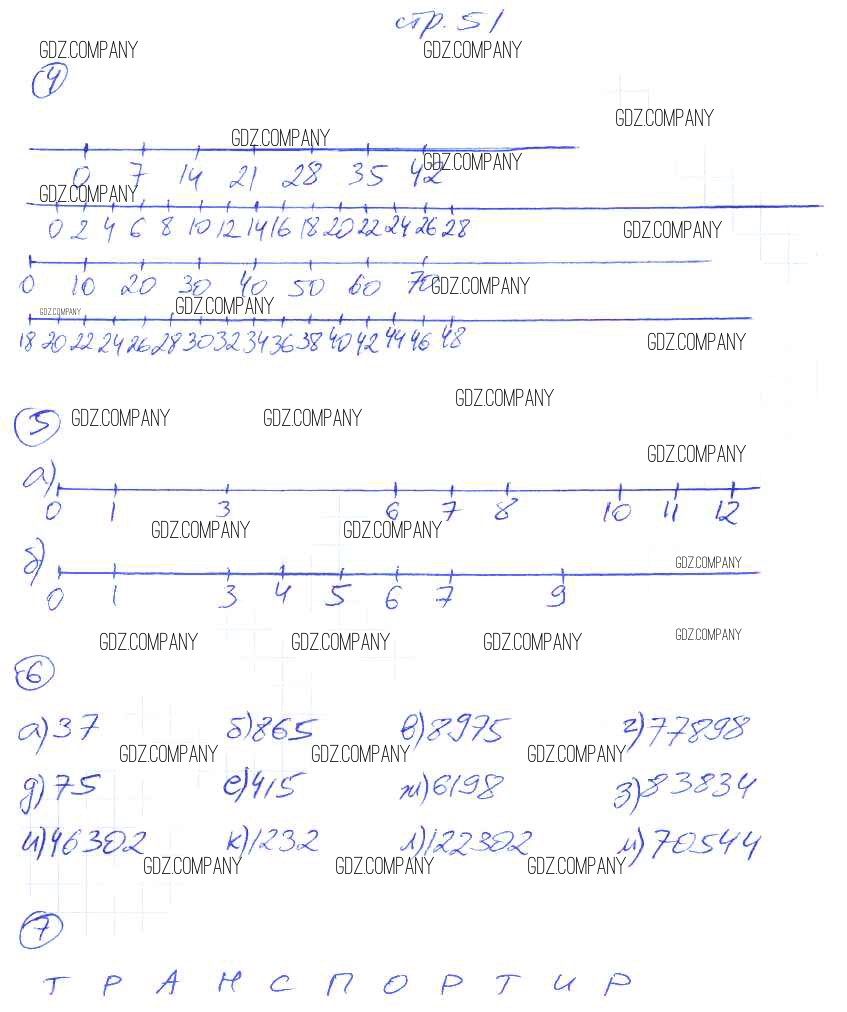 стр. 51
GDZ.COMPANY GDZ.COMPANY
4
GDZ.COMPANY
GDZ.COMPANY
GDZ.COMPANY
0 7 14 21 28 35 42
GDZ.COMPANY
0 2 4 6 8 10 12 14 16 18 20 22 24 26 28
GDZ.COMPANY
0 10 20 30 40 50 60 70
GDZ.COMPANY
GDZ.COMPANY GDZ.COMPANY
18 20 22 24 26 28 30 32 34 36 38 40 42 44 46 48
GDZ.COMPANY
GDZ.COMPANY
5
GDZ.COMPANY GDZ.COMPANY
GDZ.COMPANY
а)
0 1 3 6 7 8 10 11 12
GDZ.COMPANY GDZ.COMPANY
б)
GDZ.COMPANY
0 1 3 4 5 6 7 9
GDZ.COMPANY GDZ.COMPANY GDZ.COMPANY GDZ.COMPANY
6
а) 37 б) 865 в) 8975 г) 77898
GDZ.COMPANY GDZ.COMPANY GDZ.COMPANY
д) 75 е) 415 ж) 6198 з) 83834
и) 46302 к) 1232 л) 122302 м) 70544
GDZ.COMPANY GDZ.COMPANY GDZ.COMPANY
7
Т Р А Н С П О Р Т И Р